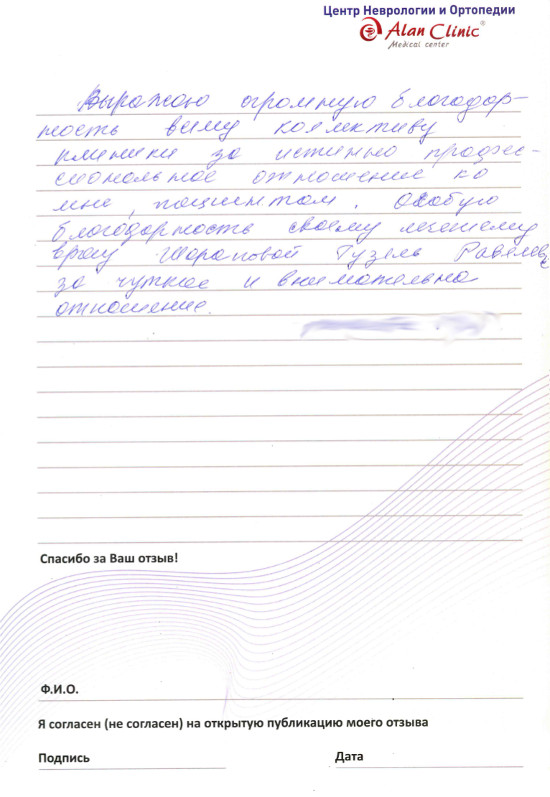 Центр Неврологии и Ортопедии
Alan Clinic®
Medical center
Выражаю огромную благодар-
ность всему коллективу
клиники за истинно профес-
сиональное отношение ко
мне, пациентам. Особую
благодарность своему лечащему
врачу Шараповой Гузель
за чуткое и внимательное
отношение.
Спасибо за Ваш отзыв!
Ф.И.О.
Я согласен (не согласен) на открытую публикацию моего отзыва
Подпись Дата